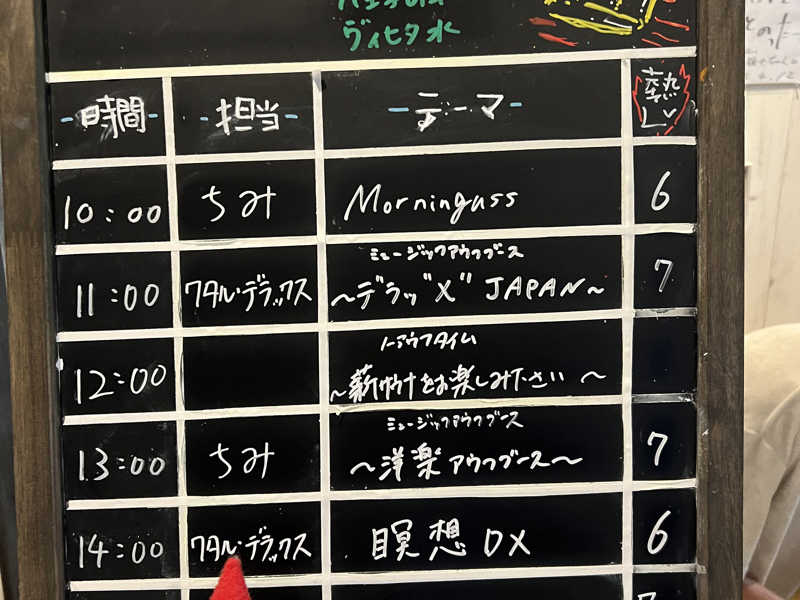 ヴィヒタ水
時間 担当 テーマ 熱レ
10:00 ちみ Morninguss 6
ミュージックアウフグース
11:00 ワタル・デラックス ～デラッ"X" JAPAN～ 7
ノーアウフタイム
12:00 ～薪サウナをお楽しみ下さい～
ミュージックアウフグース
13:00 ちみ ～洋楽アウフグース～ 7
14:00 ワタル・デラックス 瞑想DX 6